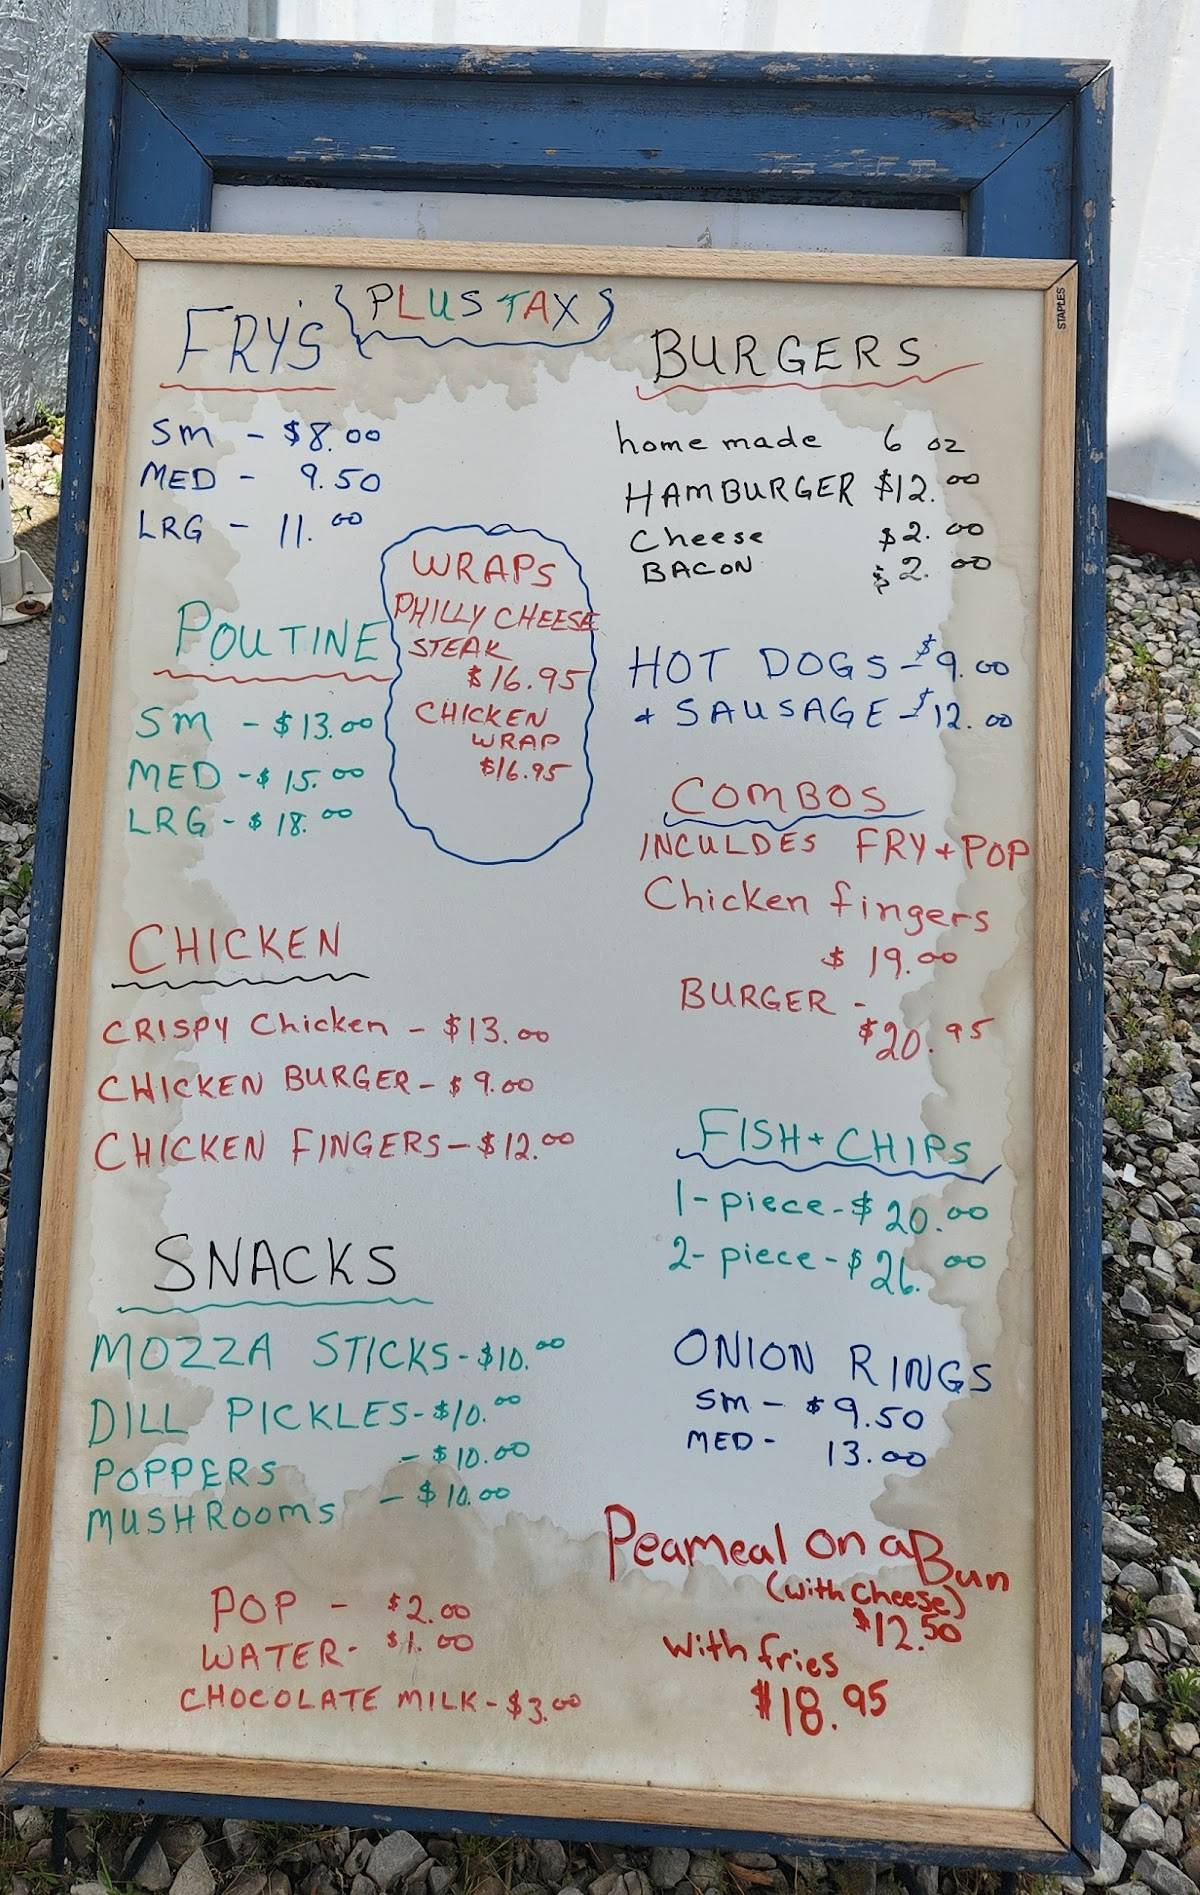 FRY'S
PLUS TAX
SM - $8.00
MED - 9.50
LRG - 11.00
POUTINE
SM - $13.00
MED - $15.00
LRG - $18.00
WRAPS
PHILLY CHEESE
STEAK
$16.95
CHICKEN
WRAP
$16.95
CHICKEN
CRISPY Chicken - $13.00
CHICKEN BURGER - $9.00
CHICKEN FINGERS - $12.00
SNACKS
MOZZA STICKS - $10.00
DILL PICKLES - $10.00
POPPERS - $10.00
MUSHROOMS - $10.00
POP - $2.00
WATER - $1.00
CHOCOLATE MILK - $3.00
STAPLES
BURGERS
home made 6 oz
HAMBURGER $12.00
Cheese $2.00
BACON $2.00
HOT DOGS - $9.00
+ SAUSAGE - $12.00
COMBOS
INCULDES FRY + POP
Chicken fingers
$19.00
BURGER -
$20.95
FISH + CHIPS
1 - piece - $20.00
2 - piece - $26.00
ONION RINGS
SM - $9.50
MED - 13.00
Peameal on a Bun
(with cheese)
$12.50
with fries
$18.95